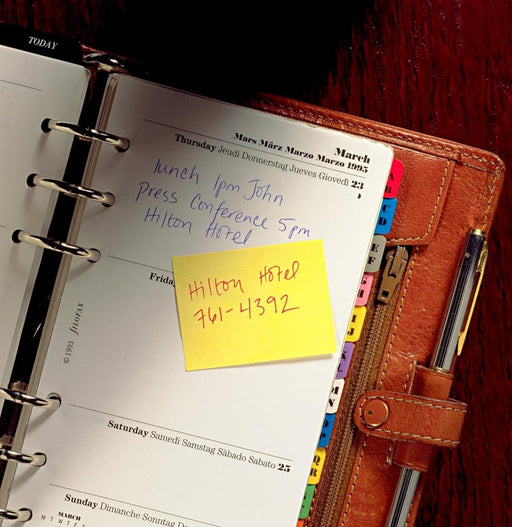 TODAY
March
Mars März Marzo Marzo 1995
Thursday Jeudi Donnerstag Jueves Giovedì 23
lunch 1pm John
Press Conference 5pm
Hilton Hotel
Frida
Hilton Hotel
761-4392
© 1993 FILOFAX
Saturday Samedi Samstag Sàbado Sabato 25
Sunday Dimanche Sonntag D
MARCH
M T W T F S
A
B
C
D
E
F
H
I
J
K
M
N
Q
R